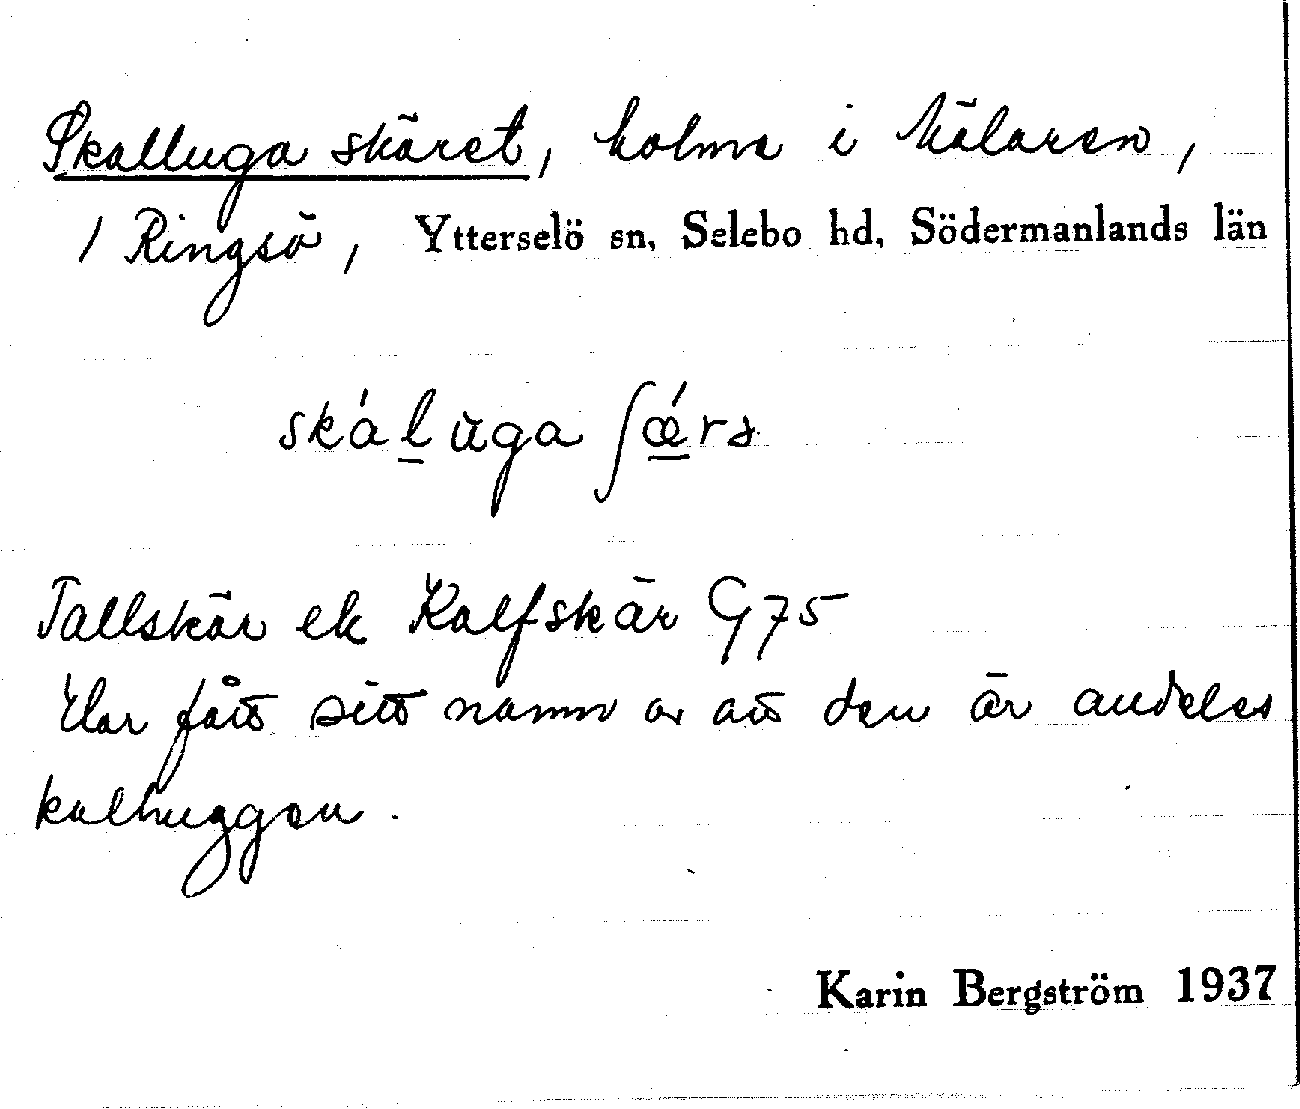 Skalluga skäret, holme i Mälaren,
/ Ringsö, Ytterselö sn, Selebo hd, Södermanlands län
skáḻùga ʃǽ̱rə
Tallskär ek Kalfskär G 75
Har fått sitt namn av att den är andeles
kalhuggen.
Karin Bergström 1937